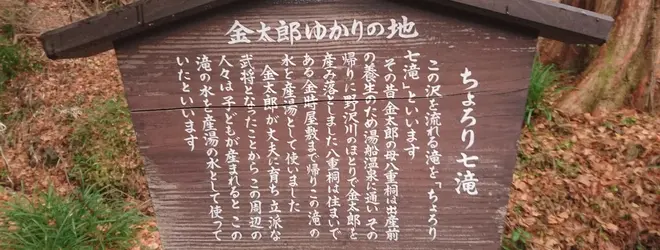 金太郎ゆかりの地
ちょろり七滝
この沢を流れる滝を「ちょろり
七滝」といいます
その昔金太郎の母八重桐は出産前
の養生のため湯船温泉に通いその
帰りに野沢川のほとりで金太郎を
産み落としました八重桐は住まいで
ある金時屋敷まで帰りこの滝の
水を産湯として使いました
金太郎が丈夫に育ち立派な
武将となったことからこの周辺の
人々は子どもが産まれるとこの
滝の水を産湯の水として使って
いたといいます